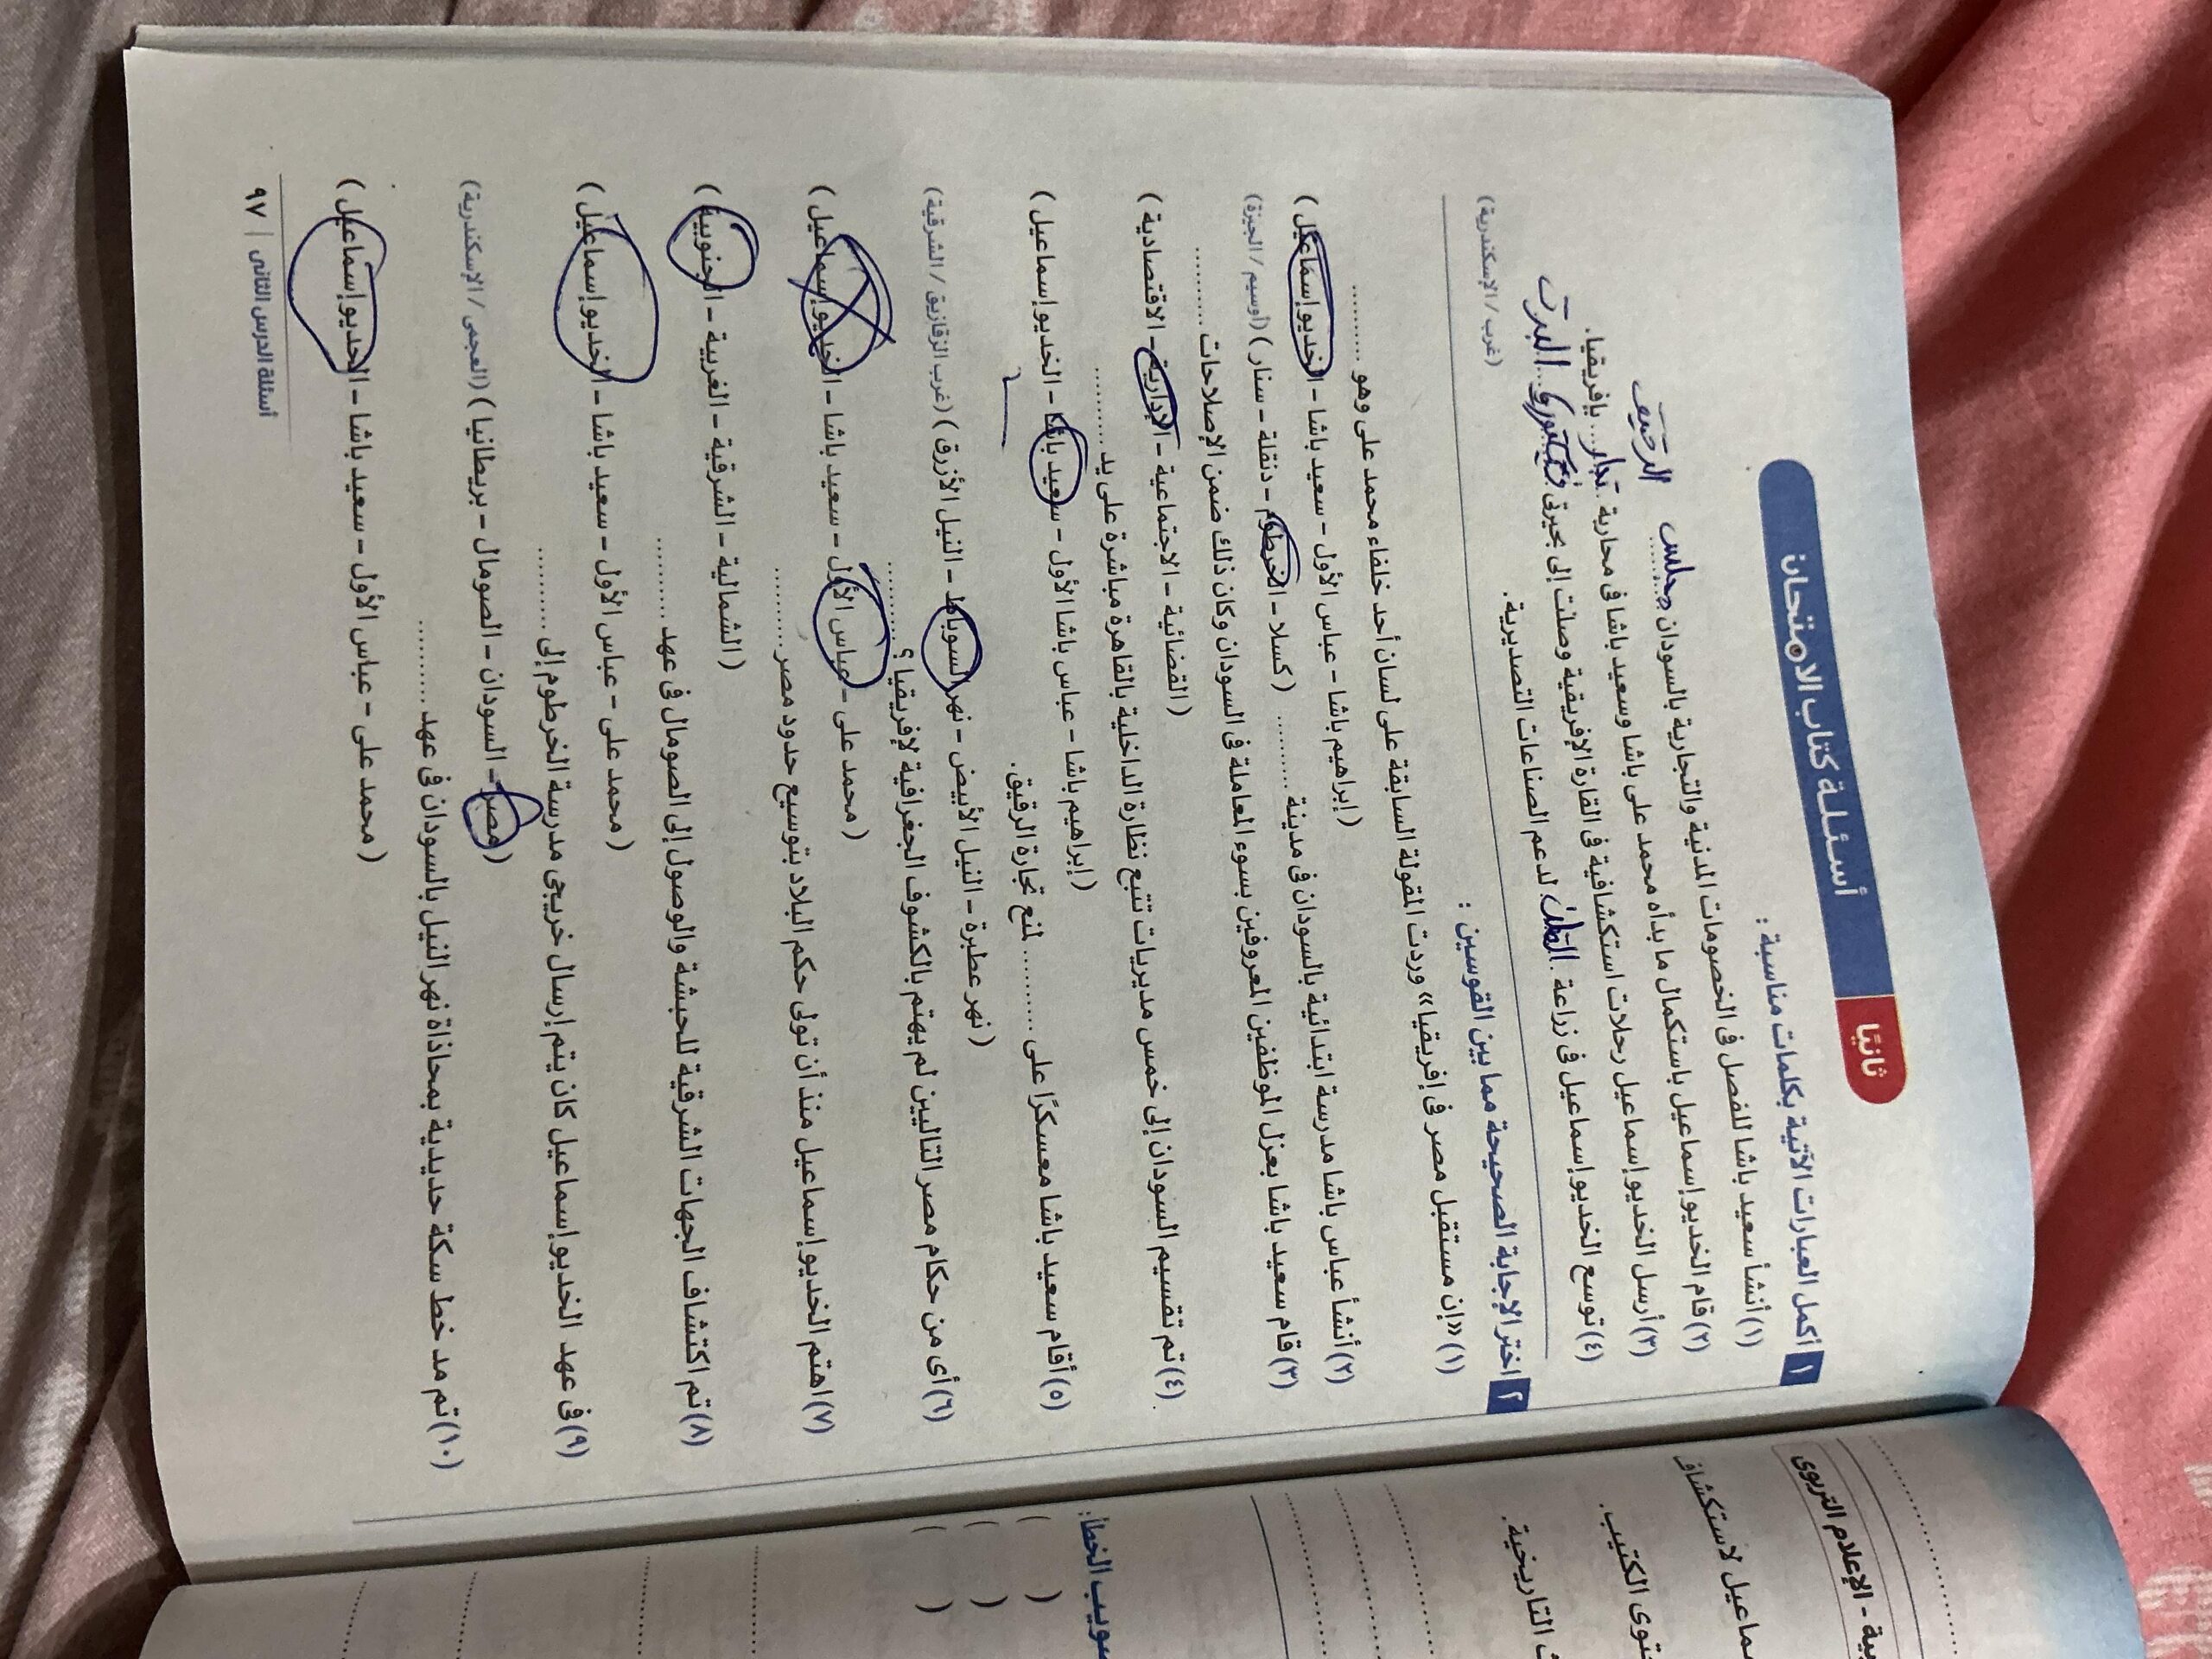 ثانيًا أسئلة كتاب الامتحان
١ أكمل العبارات الآتية بكلمات مناسبة :
(١) أنشأ سعيد باشا للفصل فى الخصومات المدنية والتجارية بالسودان مجلس
(٢) قام الخديو إسماعيل باستكمال ما بدأه محمد على باشا وسعيد باشا فى محاربة تجار الرقيق بإفريقيا.
(٣) أرسل الخديو إسماعيل رحلات استكشافية فى القارة الإفريقية وصلت إلى بحيرتى فيكتوريا البرت
(٤) توسع الخديو إسماعيل فى زراعة القطن لدعم الصناعات التصديرية.
(غرب / الإسكندرية)
٢ اختر الإجابة الصحيحة مما بين القوسين :
(١) «إن مستقبل مصر فى إفريقيا» وردت المقولة السابقة على لسان أحد خلفاء محمد على وهو ..........
( إبراهيم باشا - عباس الأول - سعيد باشا - الخديو إسماعيل )
(٢) أنشأ عباس باشا مدرسة ابتدائية بالسودان فى مدينة ..........
( كسلا - الخرطوم - دنقلة - سنار ) (أوسيم / الجيزة)
(٣) قام سعيد باشا بعزل الموظفين المعروفين بسوء المعاملة فى السودان وكان ذلك ضمن الإصلاحات ..........
( القضائية - الاجتماعية - الإدارية - الاقتصادية )
(٤) تم تقسيم السودان إلى خمس مديريات تتبع نظارة الداخلية بالقاهرة مباشرة على يد ..........
( إبراهيم باشا - عباس باشا الأول - سعيد باشا - الخديو إسماعيل )
(٥) أقام سعيد باشا معسكرًا على .......... لمنع تجارة الرقيق.
( نهر عطبرة - النيل الأبيض - نهر السوباط - النيل الأزرق ) (غرب الزقازيق / الشرقية)
(٦) أى من حكام مصر التاليين لم يهتم بالكشوف الجغرافية لإفريقيا ؟ ..........
( محمد على - عباس الأول - سعيد باشا - الخديو إسماعيل )
(٧) اهتم الخديو إسماعيل منذ أن تولى حكم البلاد بتوسيع حدود مصر ..........
( الشمالية - الشرقية - الغربية - الجنوبية )
(٨) تم اكتشاف الجهات الشرقية للحبشة والوصول إلى الصومال فى عهد ..........
( محمد على - عباس الأول - سعيد باشا - الخديو إسماعيل )
(٩) فى عهد الخديو إسماعيل كان يتم إرسال خريجى مدرسة الخرطوم إلى ..........
( مصر - السودان - الصومال - بريطانيا ) (العجمى / الإسكندرية)
(١٠) تم مد خط سكة حديدية بمحاذاة نهر النيل بالسودان فى عهد ..........
( محمد على - عباس الأول - سعيد باشا - الخديو إسماعيل )
أسئلة الدرس الثانى | ٩٧
ية - الإعلام التربوى
ماعيل لاستكشاف
توى الكتيب.
ث التاريخية.
صويب الخطأ:
( )
( )
( )